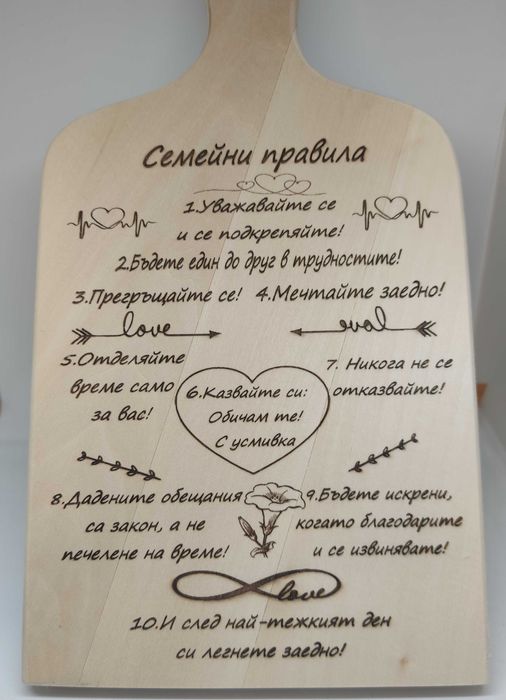 Семейни правила
1.Уважавайте се
и се подкрепяйте!
2.Бъдете един до друг в трудностите!
3.Прегръщайте се! 4.Мечтайте заедно!
love love
5.Отделяйте
време само
за вас!
6.Казвайте си:
Обичам те!
С усмивка
7. Никога не се
отказвайте!
8.Дадените обещания
са закон, а не
печелене на време!
9.Бъдете искрени,
когато благодарите
и се извинявате!
love
10.И след най-тежкият ден
си легнете заедно!